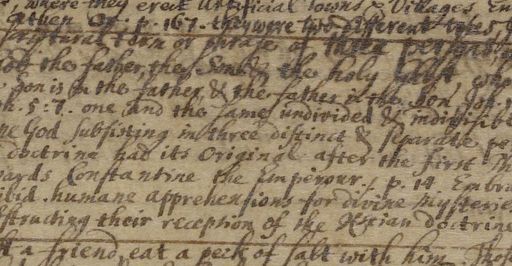 , where they erect artificial towns & Villages. En
Athen Or. p. 167. they were two different
scriptural term or phrase of three persons
of the father, the Son & the holy Ghost
Son is in the father, & the father in the Son Joh.
oh. 5:7. one and the same undivided & indivisible
ne God subsisting in three distinct & separate pe
doctrine had its Original after the first Th
ards Constantine the Emperour. p. 14 Embra
ibid. humane apprehensions for divine mysteries
structing their reception of the Xtian doctrine
a friend eat a peck of salt with him. Those